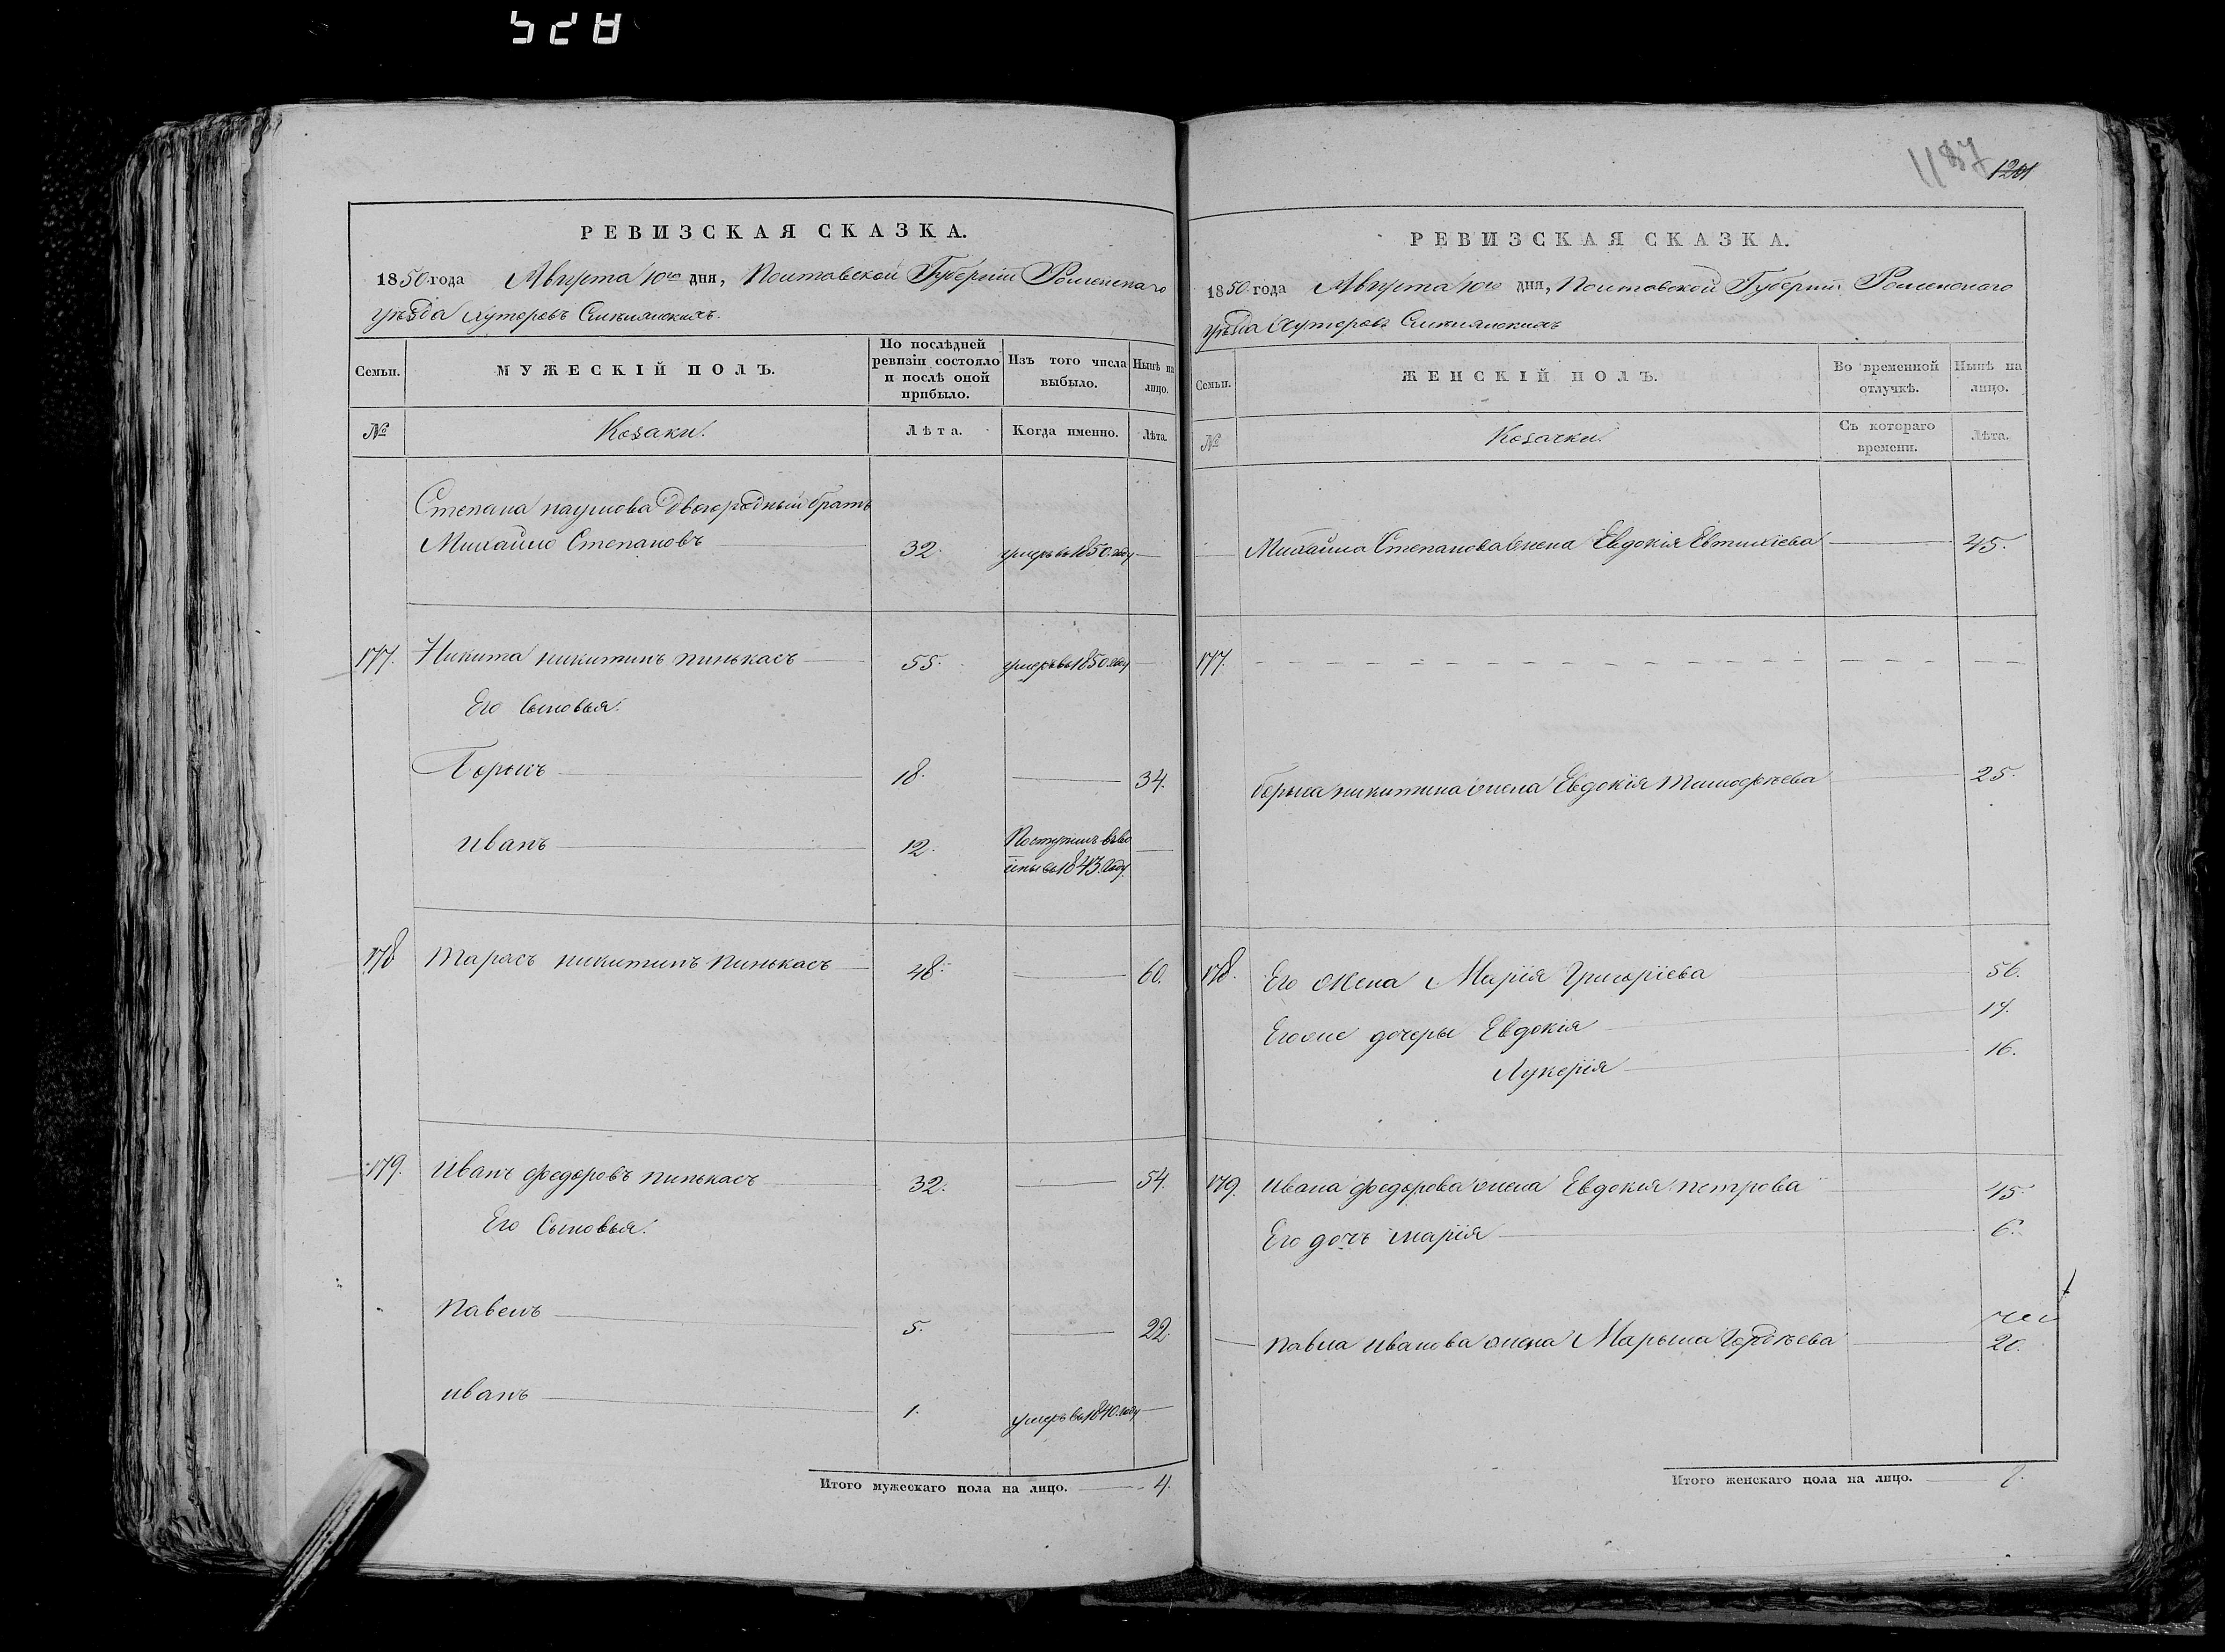 528
РЕВИЗСКАЯ СКАЗКА.
1850 года Августа 10го дня, Полтавской Губернии Роменскаго
уѣзда Хуторовъ Смѣлянскихъ.
Семьи.
МУЖЕСКІЙ ПОЛЪ.
По послѣдней ревизіи состояло и послѣ оной прибыло.
Изъ того числа выбыло.
Нынѣ на лицо.
№
Козаки.
Лѣта.
Когда именно.
Лѣта.
Степана наумова двоюродный братъ
Михайло Степановъ 32. умеръ въ 1850 году
177. Никита никитинъ пинькасъ 55. умеръ въ 1850 году
Его Сыновья.
Борысъ 18. 34.
иванъ 12.
въ 1843 году
178 Тарасъ никитинъ пинькасъ 48. 60.
179. иванъ федоровъ пинькасъ 32. 54.
Его Сыновья.
павелъ 5. 22.
иванъ 1. умеръ въ 1840 году
Итого мужескаго пола на лицо. 4.
1187 1201
РЕВИЗСКАЯ СКАЗКА.
1850 года Августа 10го дня, Полтавской Губерніи Роменскаго
уѣзда Хуторовъ Смѣлянскихъ
Семьи.
ЖЕНСКІЙ ПОЛЪ.
Во временной отлучкѣ.
Нынѣ на лицо.
№
Козачки.
Съ котораго времени.
Лѣта.
Михайла Степанова жена Евдокія Евтихіева 45.
177.
борыса никитина жена Евдокія Тимофѣева 25.
178. Его жена Марія Григоріева 56.
Егоже дочеры Евдокія 17.
Лукерія 16.
179. ивана федорова жена Евдокія петрова 45.
Его дочь марія 6.
павла иванова жена 20.
Итого женскаго пола на лицо.